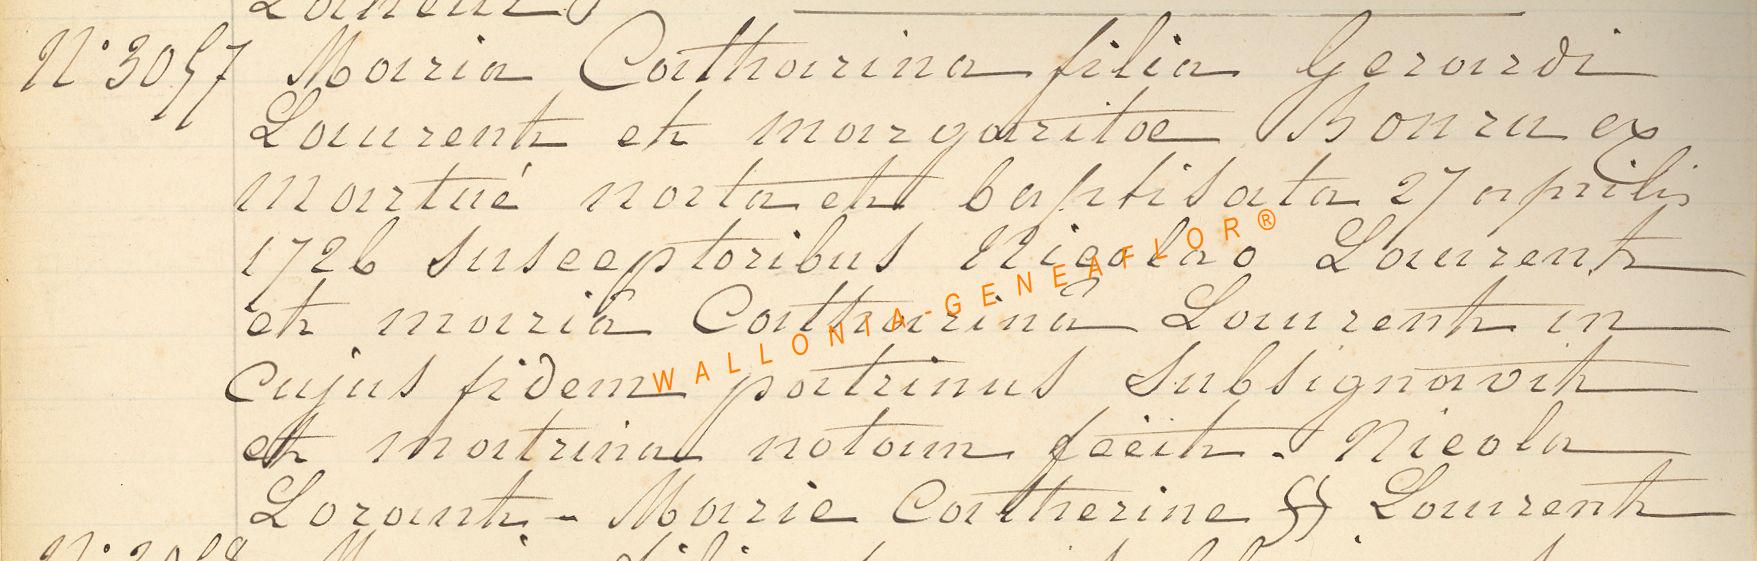 Laurent
N° 3057 Maria Catharina filia Gerardi
Laurent et margaritae Bonru ex
Martué nata et baptisata 27 aprilis
1726 susceptoribus Nicolao Laurent
et mariâ Catharinâ Laurent in
cujus fidem patrinus subsignavit
et matrina notam fecit. Nicola
Lorant - Marie Catherine Laurent
WALLONIA-GENEAFLOR®